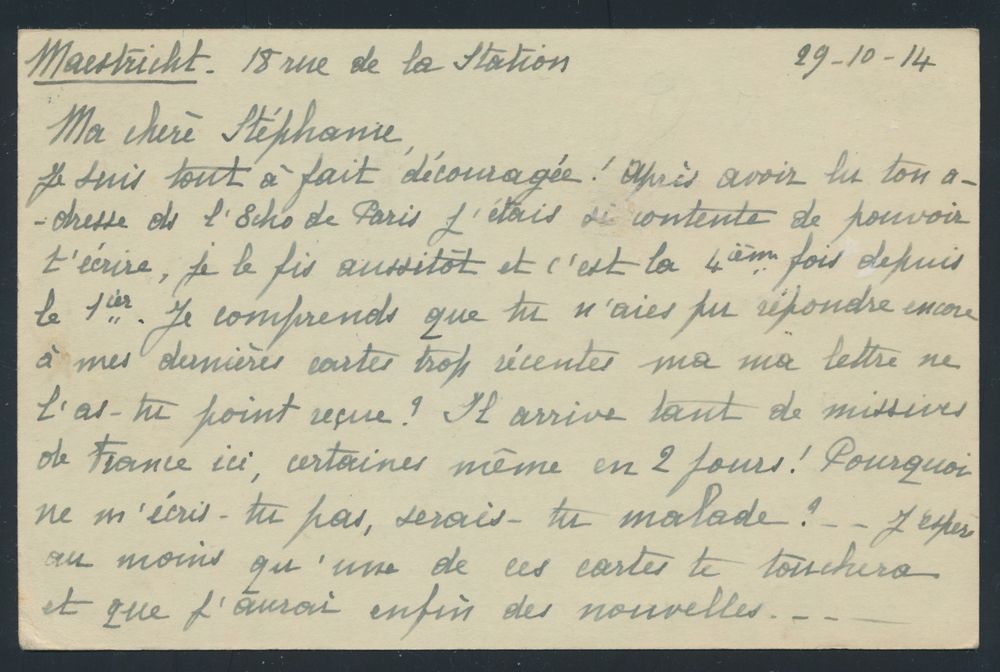 Maestricht - 18 rue de la Station 29-10-14
Ma cherè Stéphanie,
Je suis tout à fait découragée ! Après avoir lu ton a-
-dresse ds l'Echo de Paris j'étais si contente de pouvoir
t'écrire, je le fis aussitôt et c'est la 4ièm fois depuis
le 1ier. Je comprends que tu n'aies pu répondre encore
à mes dernières cartes trop récentes ma ma lettre ne
l'as-tu point reçue ? Il arrive tant de missives
de France ici, certaines même en 2 jours ! Pourquoi
ne m'écris-tu pas, serais-tu malade ? - - J'espère
au moins qu'une de ces cartes te touchera
et que j'aurai enfin des nouvelles. - - -